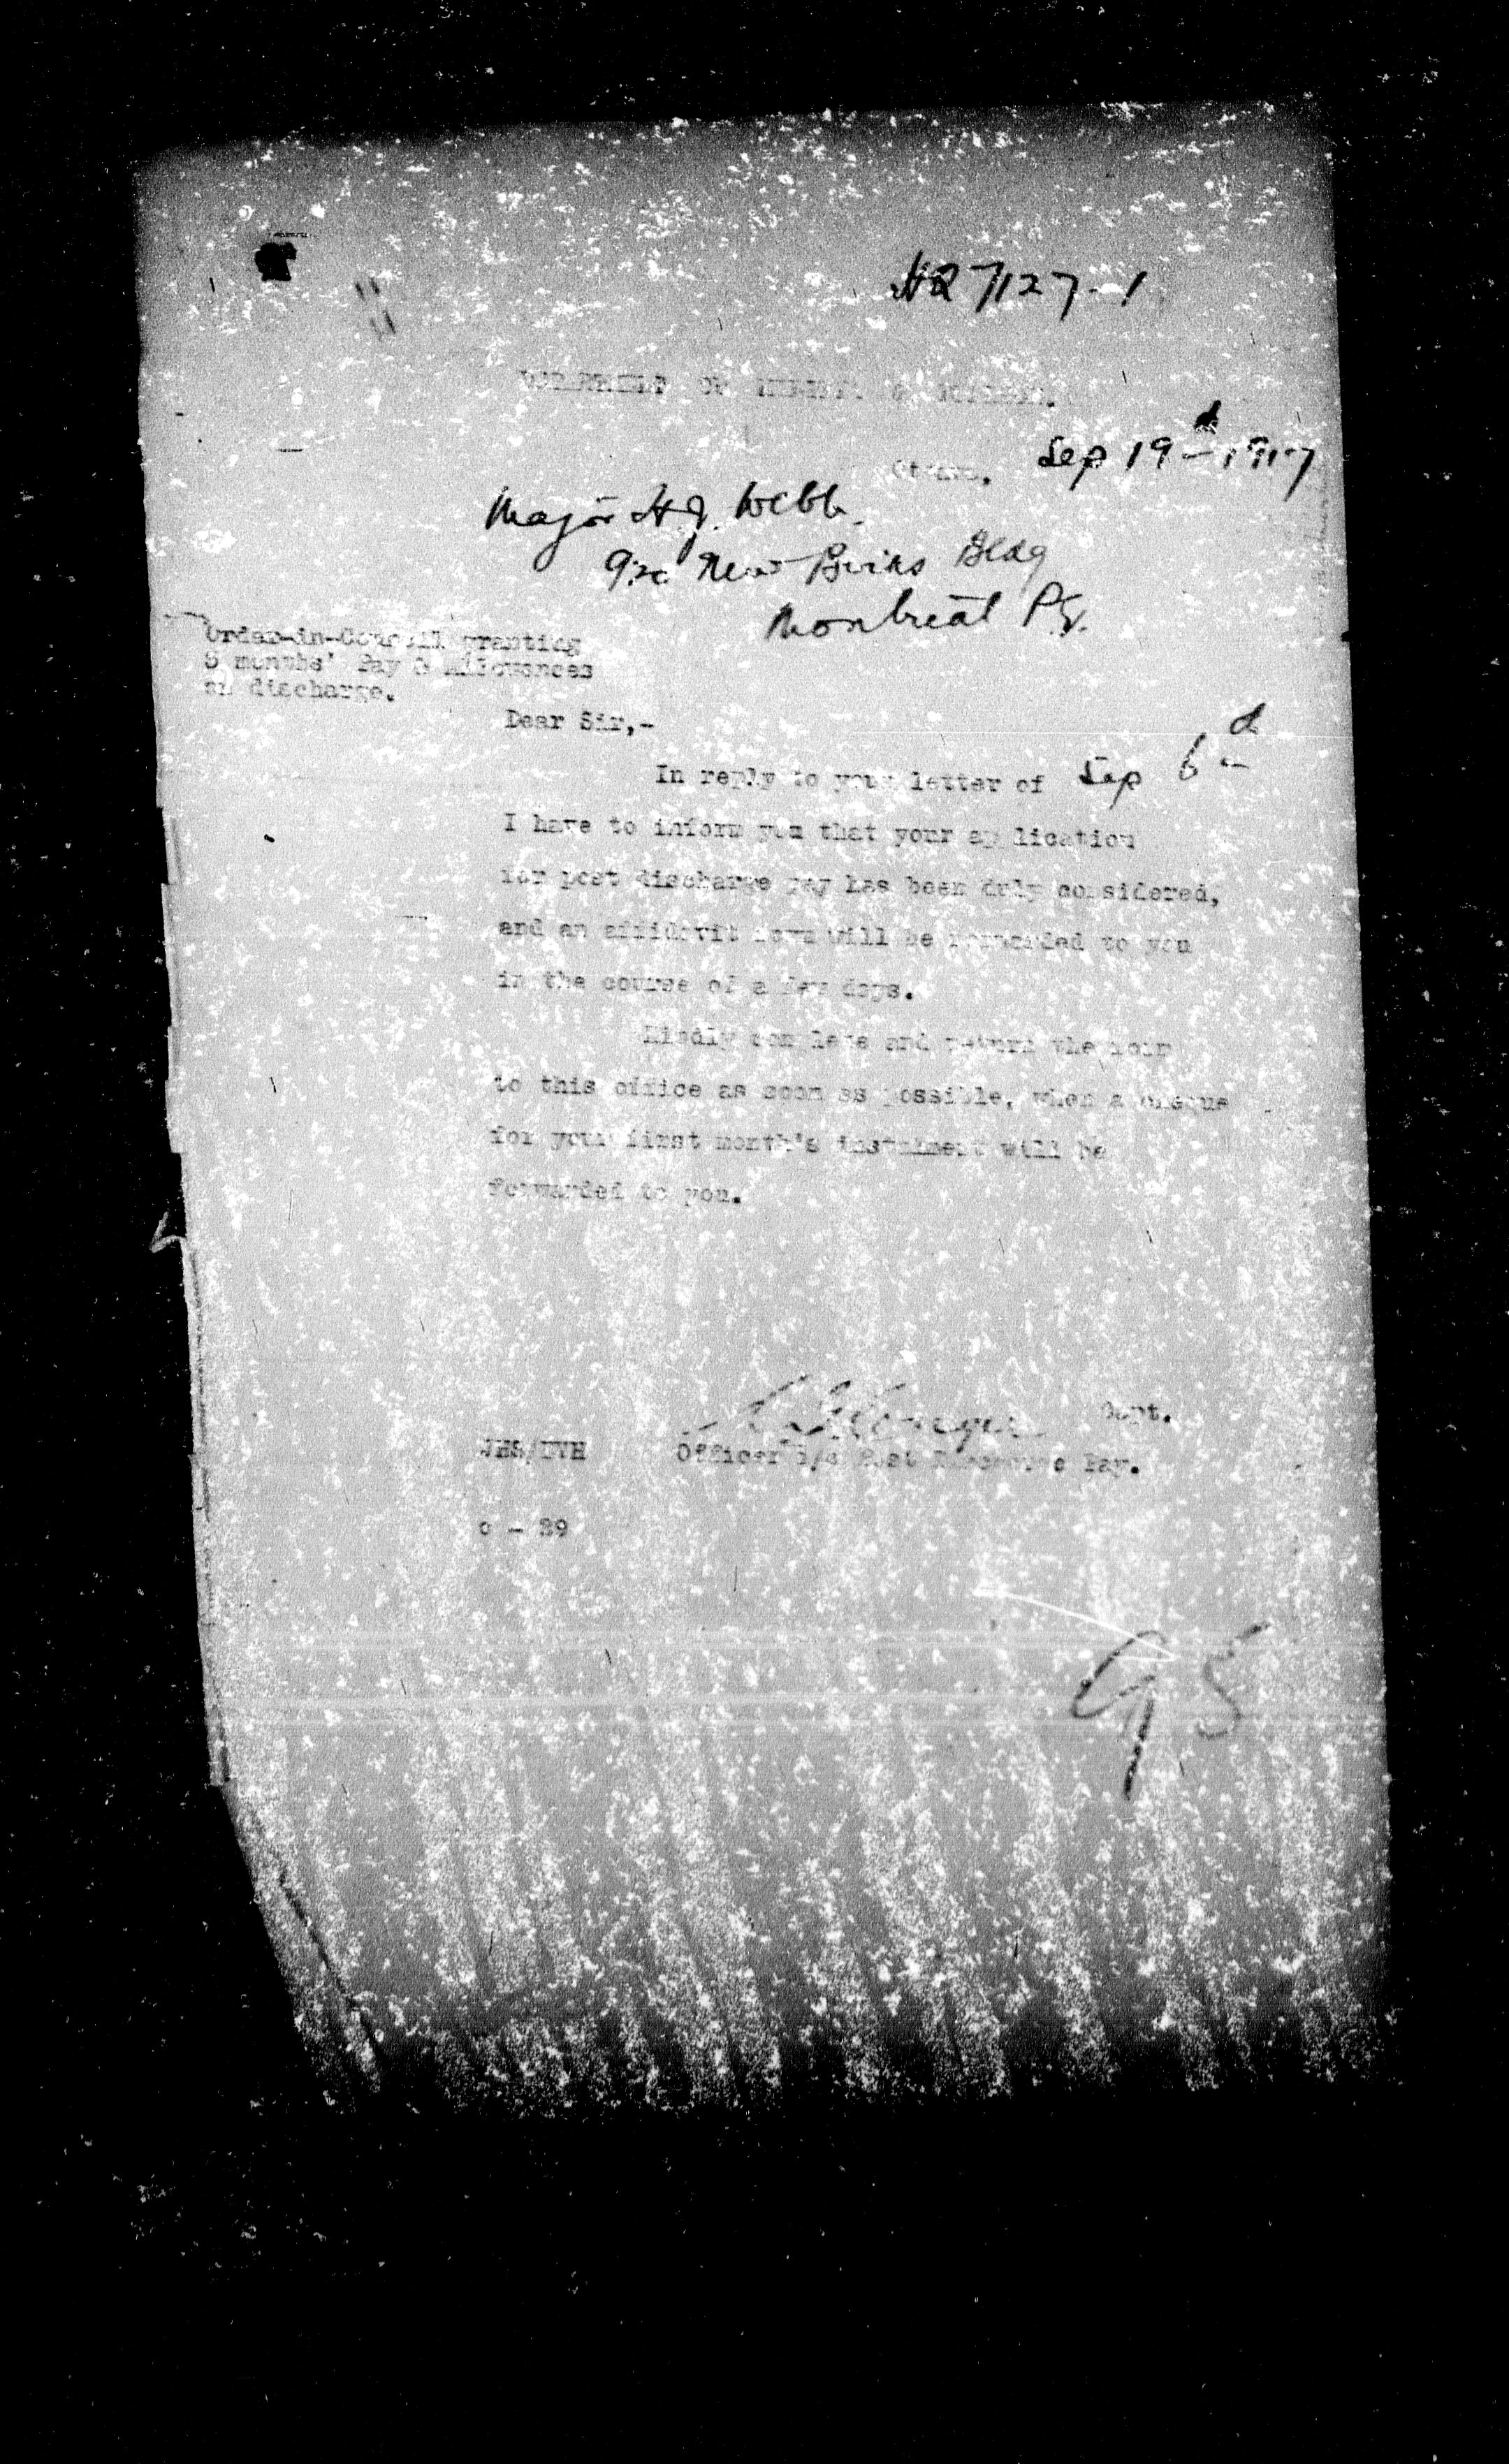 HQ 7127-1
DEPARTMENT OF MILITIA & DEFENCE.
Ottawa. Sep 19th 1917
Major H.J. Webb.
920 New Birks Bldg
Montreal P.Q.
Order-in-Council granting
months' Pay & Allowances
on discharge.
Dear Sir,-
In reply to your letter of Sep 6th
I have to inform you that your application
for post discharge pay has been duly considered,
and an affidavit form will be forwarded to you
in the course of a few days.
Kindly complete and return the form
to this office as soon as possible, when a cheque
for your first month's instalment will be
forwarded to you.
Capt.
Officer i/c Post Discharge Pay.
95